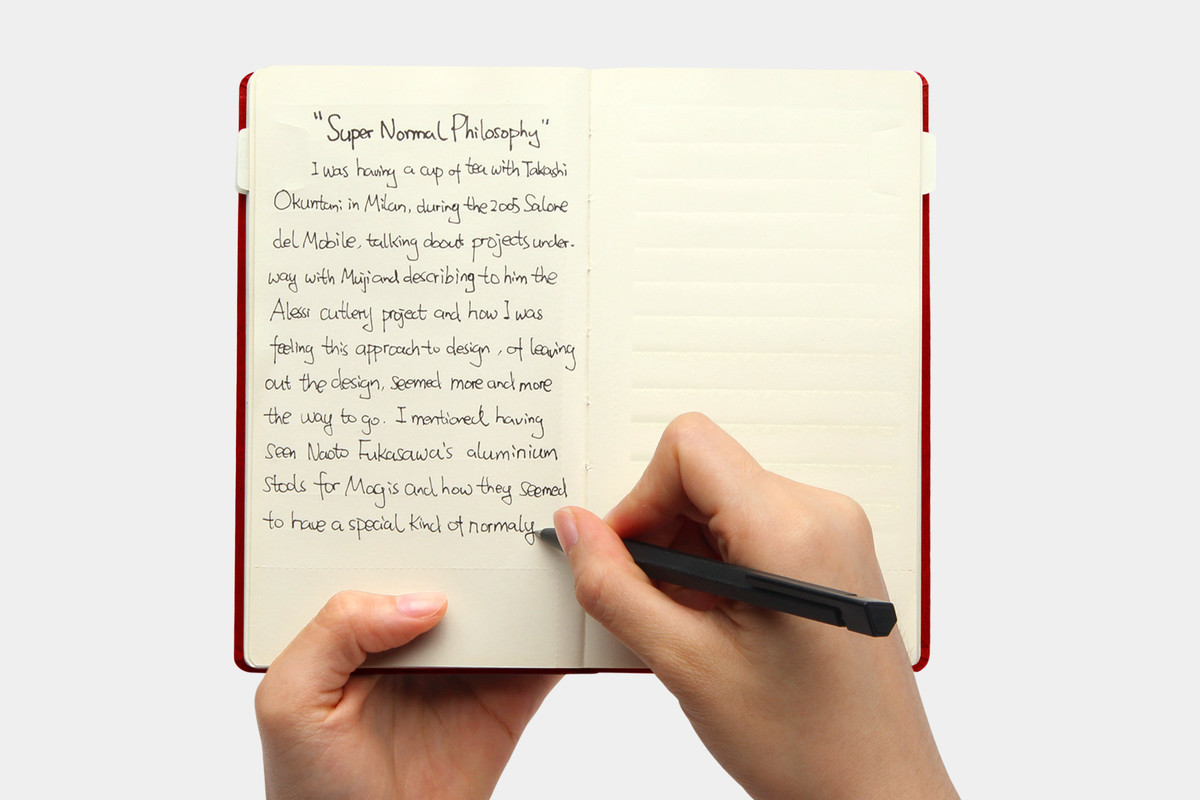 "Super Normal Philosophy"
I was having a cup of tea with Takashi
Okuntani in Milan, during the 2005 Salone
del Mobile, talking about projects under-
way with Muji and describing to him the
Alessi cutlery project and how I was
feeling this approach to design, of leaving
out the design, seemed more and more
the way to go. I mentioned having
seen Naoto Fukasawa's aluminium
stools for Magis and how they seemed
to have a special kind of normaly